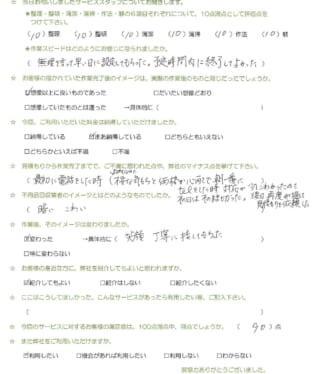 ☆ 当日お伺いしましたサービススタッフについてお聞きします。
★整理・整頓・清潔・清掃・作法・躾の6項目それぞれについて、10点満点として評価点を
つけて下さい。
(10)整理 (10)整頓 (10)清潔 (10)清掃 (10)作法 (10)躾
★作業スピードはどのようにお感じになられましたか。
☆ お客様の描かれていた作業完了後のイメージは、実際の作業後のものと同じだったでしょうか。
☑想像以上に良いものであった □だいたい想像どおり
□想像していたものとは違った →具体的に(
☆ 今回、ご利用いただいた料金は納得していただけましたか。
□納得している ☑まあ納得している □どちらともいえない
□どちらかといえば不満 □不満
☆ 見積もりから作業完了までで、ご不満に思われた点や、弊社のマイナス点を挙げて下さい。
(最初に電話をした時
☆ 不用品回収業者のイメージとはどのようなものでしたか。
(暗い こわい
☆ 作業後、そのイメージは変わりましたか。
☑変わった →具体的に( 笑顔 丁寧に接してもらった
□特に変わらない
☆ お客様の身近な方に、弊社を紹介してもよいと思われますか。
☑紹介してもよい □紹介はしない □紹介したくない
☆ ここはこうしてほしかった、こんなサービスがあったら利用したい等、ご記入下さい。
( )
☆ 今回のサービスに対するお客様の満足度は、100点満点中、何点でしょうか。 ( 90 )点
☆ また弊社をご利用いただけますか。
☑利用したい □機会があれば利用したい □利用しない □わからない
ご協力ありがとうございました。